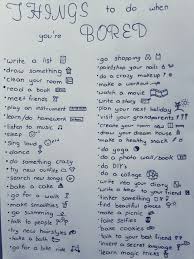 THINGS to do when
you're BORED
• write a list
• draw something
• clean your room
• read a book
• meet friends
• play an instrument
• learn/do homework
• listen to music
• sleep
• sing loud
• dance
• do something crazy
• try new outfits
• search new songs
• bake a cake
• go for a walk
• make smoothies
• go swimming
• talk to people
• try new hairstyle
• take a bath
• go for a ride
• go shopping
• paint your nails
• do a crazy makeup
• make a workout
• watch a movie
• write a story
• plan your next holiday
• visit your grandparents
• create your room new
• draw your dream house
• make something healthy
• do yoga
• do a photo wall/book
• do DIY's
• do a collage
• write into your diary
• write a letter to your friend
• find beautiful places
• make a picnic
• bake cookies
• talk to your best friend
• invent a secret language
• learn magic tricks